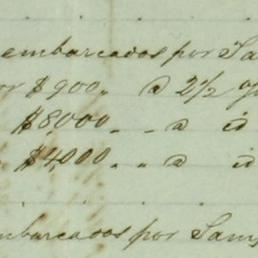 embarcados por Sa
or $900,, a 2½ %
$8,000 ,, ,, a id
$4,000 ,, ,, a id
mbarcados por Sam